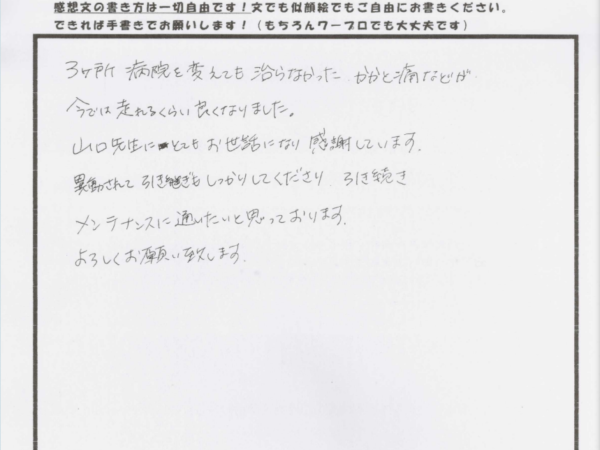 感想文の書き方は一切自由です！文でも似顔絵でもご自由にお書きください。
できれば手書きでお願いします！（もちろんワープロでも大丈夫です）
3ヶ所 病院を変えても 治らなかった かかと痛などが
今では 走れるくらい 良くなりました。
山口先生に とても お世話になり 感謝しています。
異動されて 引き継ぎも しっかりしてくださり 引き続き
メンテナンスに 通いたいと思っております。
よろしくお願い致します。